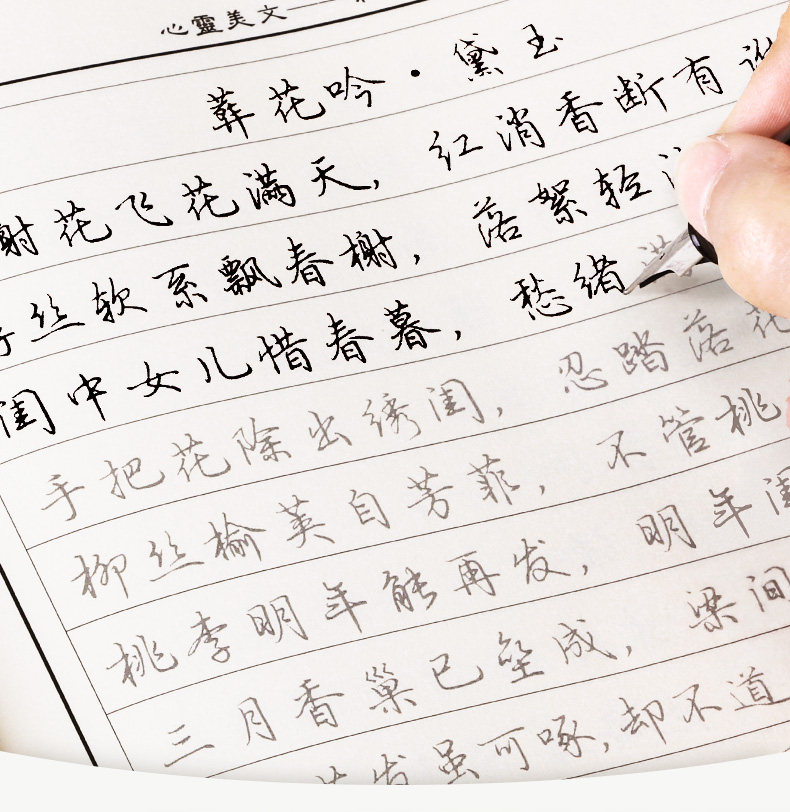 心靈美文——
葬花吟·黛玉
谢花飞花满天，红消香断有谁
丝软系飘春榭，落絮轻
闺中女儿惜春暮，愁绪满
手把花除出绣闺，忍踏落花
柳丝榆荚自芳菲，不管桃
桃李明年能再发，明年闺
三月香巢已垒成，梁间
发虽可啄，却不道